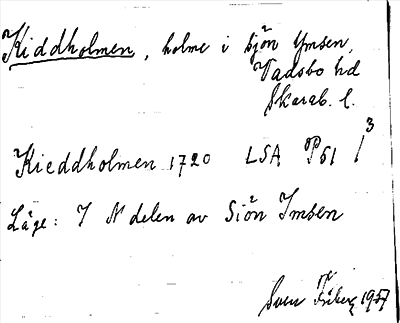 Kiddholmen, holme i sjön Ymsen,
Vadsbo hd
Skarab. l.
Kieddholmen 1720 LSA P61 1/3
Läge: I N delen av Sjön Imsen
Sven Friberg 1937